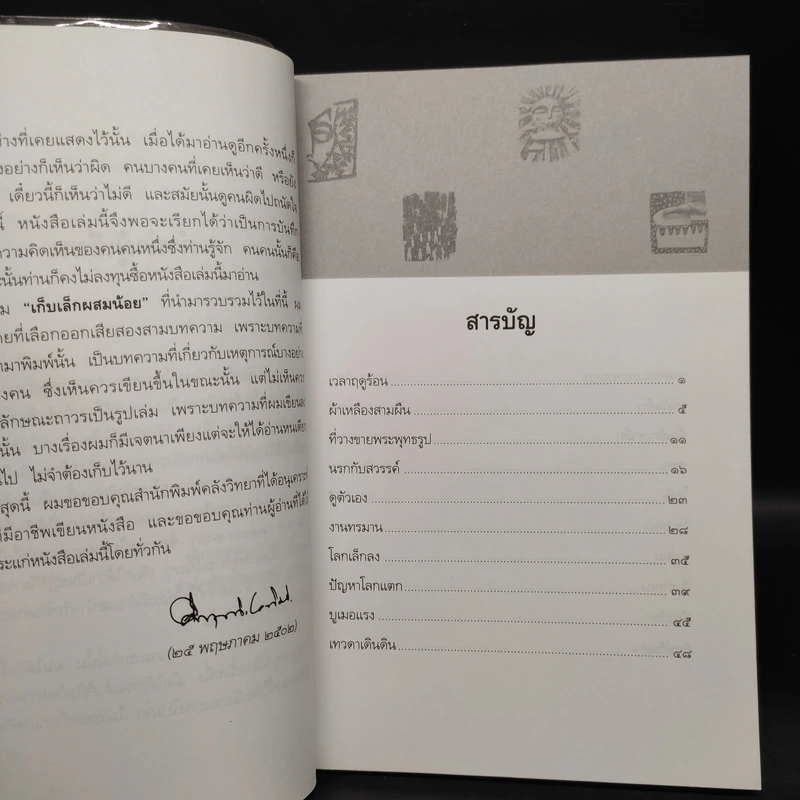 างที่เคยแสดงไว้นั้น เมื่อได้มาอ่านดูอีกครั้งหนึ่งก็
งอย่างก็เห็นว่าผิด คนบางคนที่เคยเห็นว่าดี หรือยัง
เดี๋ยวนี้ก็เห็นว่าไม่ดี และสมัยนั้นดูคนผิดไปถนัดใจ
้ หนังสือเล่มนี้จึงพอจะเรียกได้ว่าเป็นการบันทึก
วามคิดเห็นของคนคนหนึ่งซึ่งท่านรู้จัก คนคนนั้นก็คือ
ะนั้นท่านก็คงไม่ลงทุนซื้อหนังสือเล่มนี้มาอ่าน
ม “เก็บเล็กผสมน้อย” ที่นำมารวบรวมไว้ในที่นี้ ผม
ดยที่เลือกออกเสียสองสามบทความ เพราะบทความที่
ามาพิมพ์นั้น เป็นบทความที่เกี่ยวกับเหตุการณ์บางอย่าง
งคน ซึ่งเห็นควรเขียนขึ้นในขณะนั้น แต่ไม่เห็นควร
ลักษณะถาวรเป็นรูปเล่ม เพราะบทความที่ผมเขียนลง
นั้น บางเรื่องผมก็มีเจตนาเพียงแต่จะให้ได้อ่านหนเดียว
นไป ไม่จำต้องเก็บไว้นาน
สุดนี้ ผมขอขอบคุณสำนักพิมพ์คลังวิทยาที่ได้อนุเคราะห์
ที่มีอาชีพเขียนหนังสือ และขอขอบคุณท่านผู้อ่านที่ได้ให้
ระแก่หนังสือเล่มนี้โดยทั่วกัน
(๒๕ พฤษภาคม ๒๕๐๒)
สารบัญ
เวลาฤดูร้อน ๑
ผ้าเหลืองสามผืน ๕
ที่วางขายพระพุทธรูป ๑๑
นรกกับสวรรค์ ๑๖
ดูตัวเอง ๒๓
งานทรมาน ๒๘
โลกเล็กลง ๓๕
ปัญหาโลกแตก ๓๙
บูเมอแรง ๔๕
เทวดาเดินดิน ๔๘